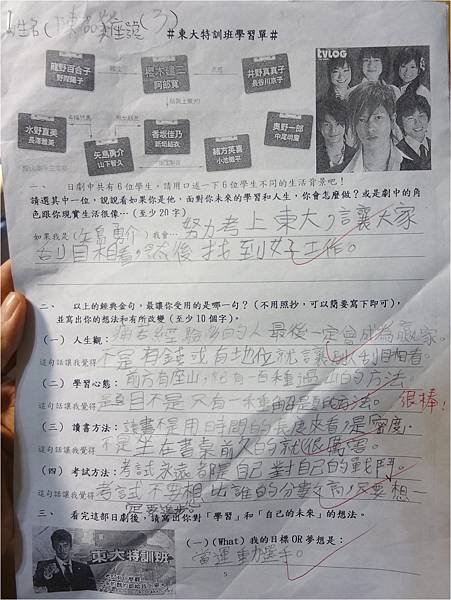 #東大特訓班學習單#
龍野百合子
野際陽子
櫻木建二
阿部寬
井野真真子
長谷川京子
水野直美
長澤雅美
矢島勇介
山下智久
香坂佳乃
新垣結衣
緒方英喜
小池徹平
奧野一郎
中尾明慶
TVLOG
一、 日劇中共有6位學生,請用口述一下6位學生不同的生活背景吧!
請選其中一位,說說看如果你是他,面對你未來的學習和人生,你會怎麼做?或是劇中的角
色跟你現實生活很像…(至少20字)
如果我是(矢島勇介)我會…努力考上東大,讓大家
刮目相看,然後找到好工作。
二、 以上的經典金句,最讓你受用的是哪一句?(不用照抄,可以簡要寫下即可),
並寫出你的想法和有所改變(至少10個字)。
(一)人生觀:痛苦經驗多的人最後一定會成為贏家。
這句話讓我覺得不是有錢或有地位就讓別人刮目相看。
(二)學習心態:前方有座山,就有一百種過山的方法。
這句話讓我覺得題目不是只有一種解題的方法。
很棒!
(三)讀書方法:讀書不是用時間的長度來看,是密度。
這句話讓我覺得不是坐在書桌前久的就很厲害。
(四)考試方法:考試永遠都是自己對自己的戰鬥。
這句話讓我覺得考試不要想比誰的分數高,只要想一
定要進步。
三、 看完這部日劇後,請寫出你對「學習」和「自己的未來」的想法。
東大特訓班
(一)(What)我的目標OR夢想是:
當運動選手。
5